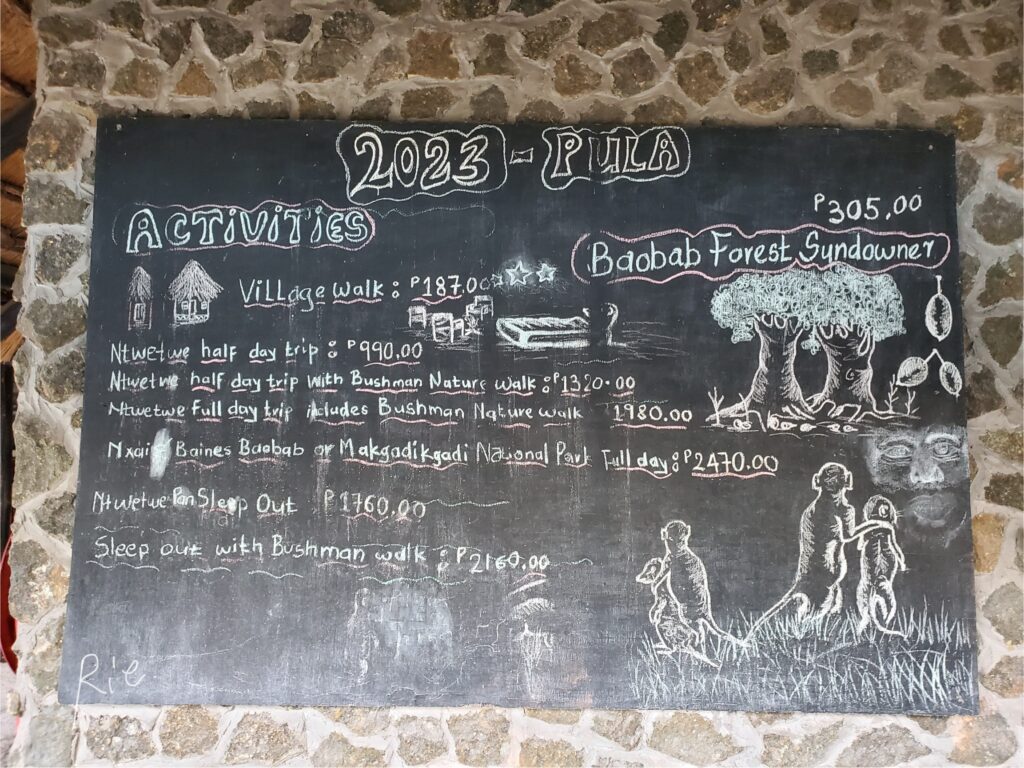 2023 - PULA
ACTiViTiES
P305.00
Baobab Forest Syndowner
Village walk : P187.00
Ntwetwe half day trip : P990.00
Ntwetwe half day trip with Bushman Nature walk : P1320.00
Ntwetwe Full day trip icludes Bushman Nature walk 1980.00
Nxai Baines Baobab or Makgadikgadi National Park Full day : P2470.00
Ntwetwe Pan Sleep Out P1760.00
Sleep out with Bushman walk : P2160.00
Rie